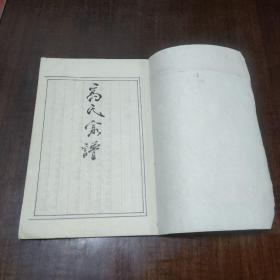 高氏家譜